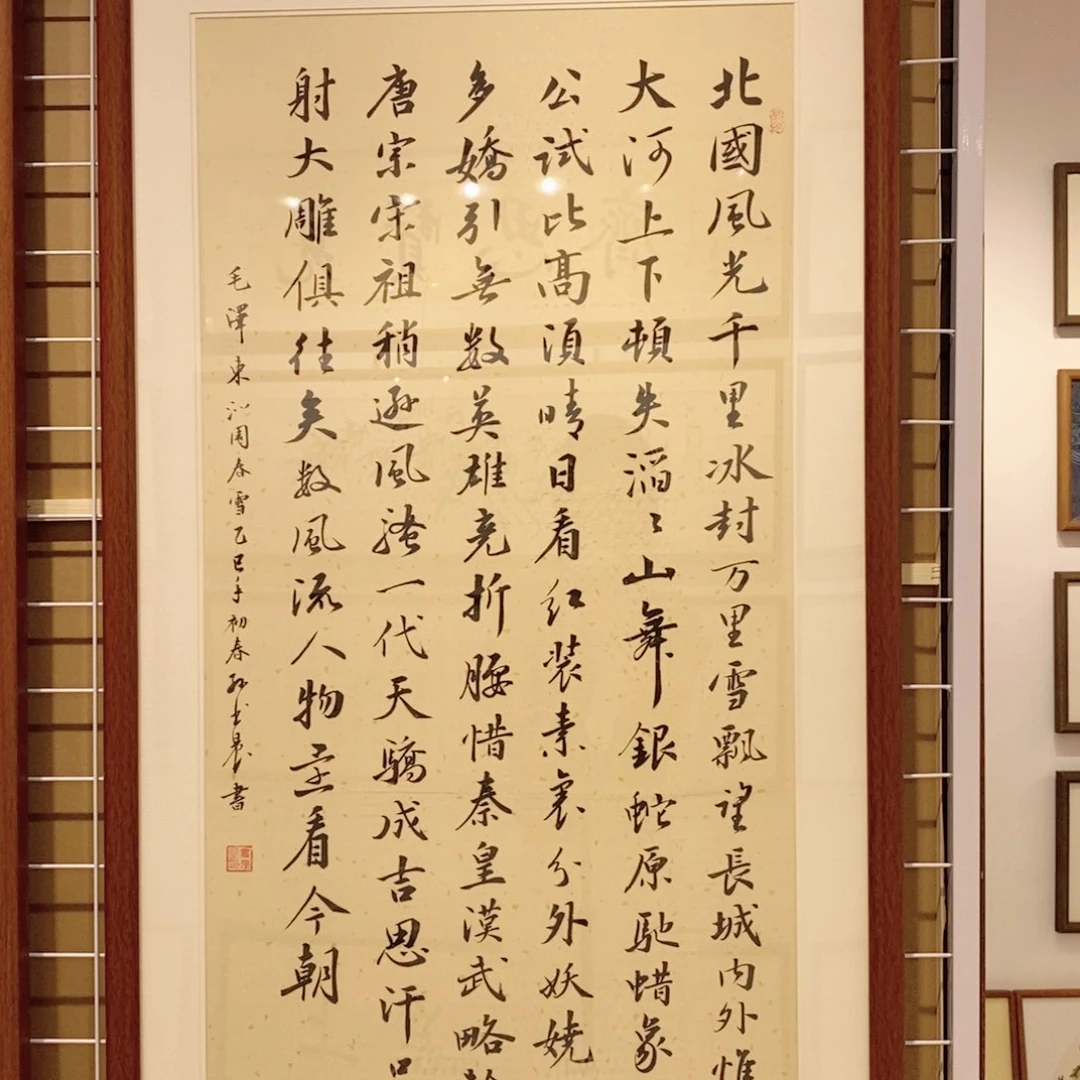 北國風光千里冰封万里雪飄望長城内外惟
大河上下頓失滔〻山舞銀蛇原馳蜡象
公試比髙須晴日看红装素裹分外妖嬈
多嬌引無数英雄竞折腰惜秦皇漢武略
唐宗宋祖稍逊風骚一代天驕成吉思汗
射大雕俱往矣数風流人物还看今朝
毛澤東沁園春雪乙巳年初春書